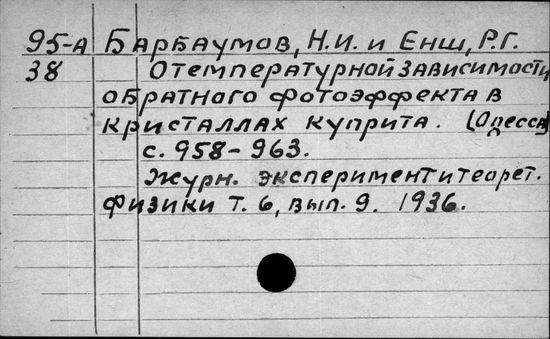 95-А Барбаумов, Н.И. и Енш, Р.Г.
38 О температурной зависимости
обратного фотоэффекта в
кристаллах куприта. (Одесса)
с. 958-963.
Журн. эксперимент и теорет.
физики т. 6, вып. 9. 1936.